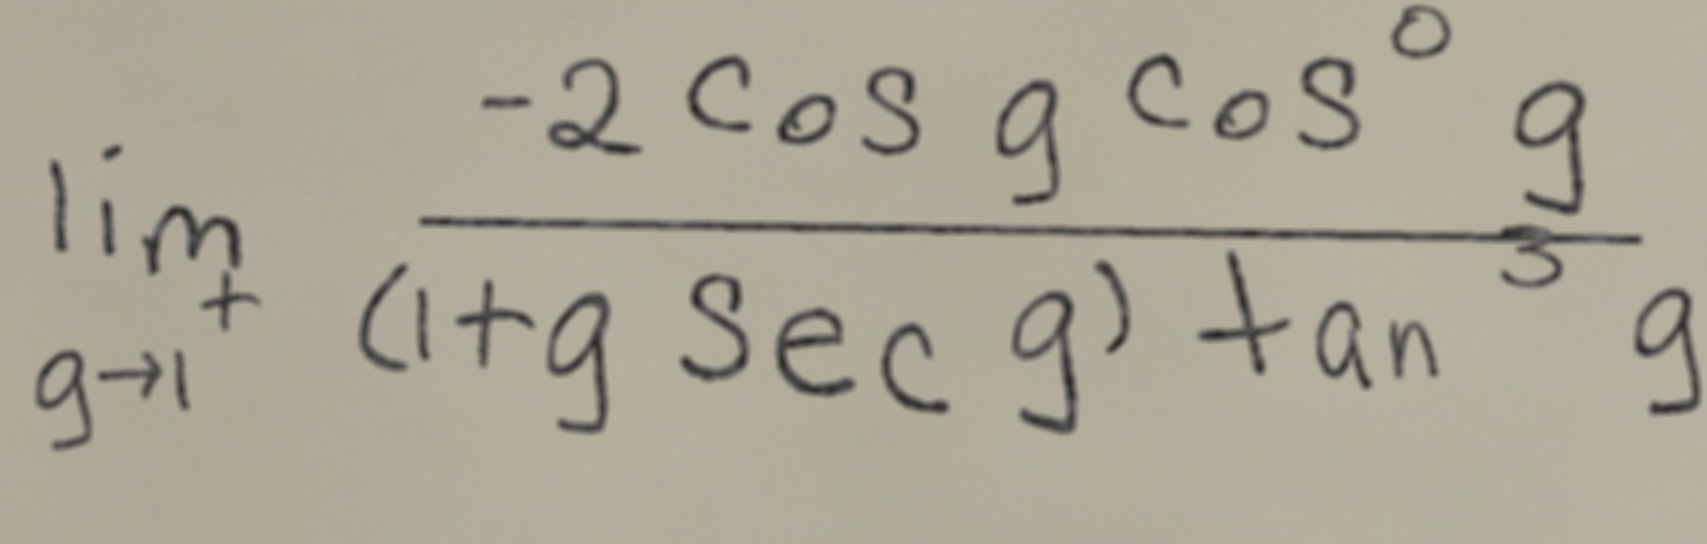 lim g→1⁺ (-2 cos g cos⁰ g) / ((1+g sec g) tan³ g)